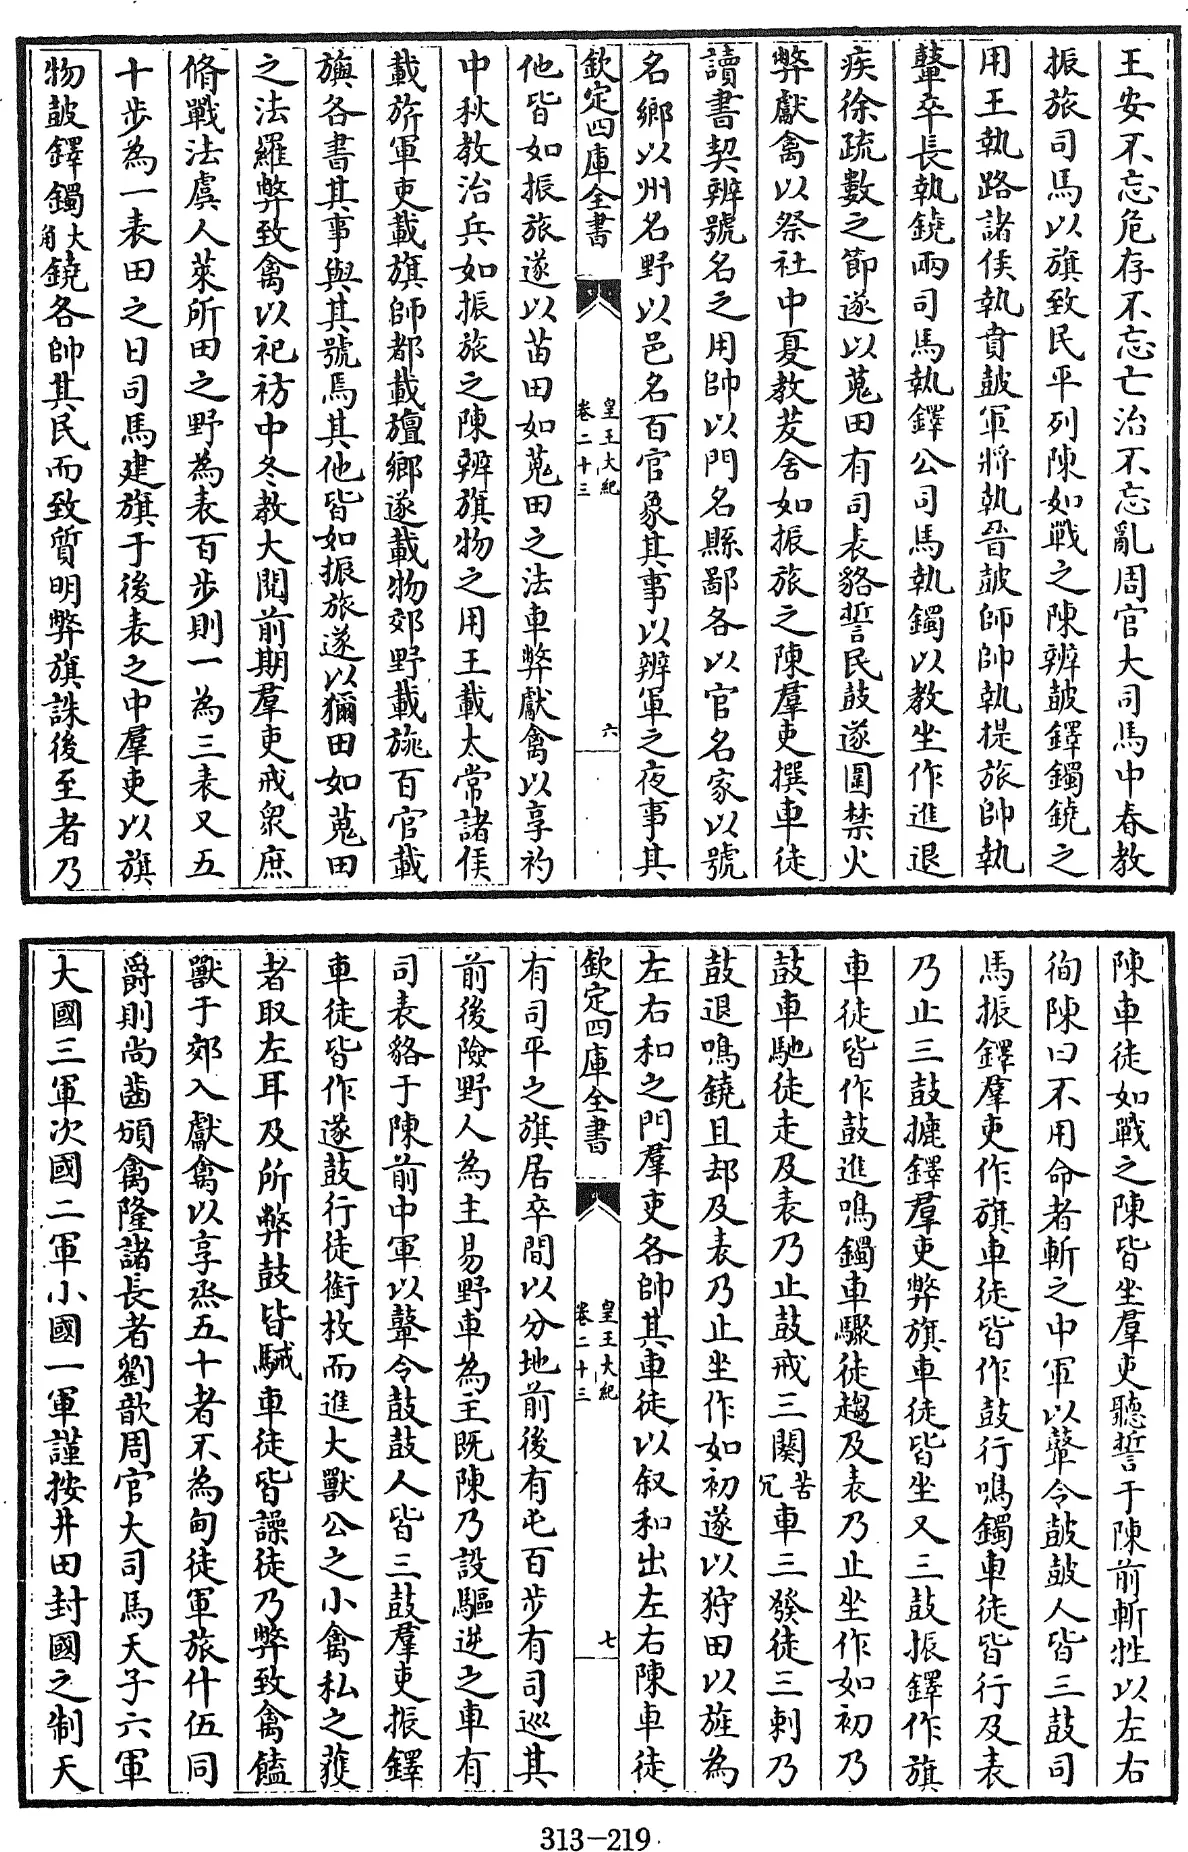 王安不忘危存不忘亡治不忘亂周官大司馬中春教
振旅司馬以旗致民平列陳如戰之陳辨鼓鐸鐲鐃之
用王執路諸侯執賁鼓軍將執晉鼓師帥執提旅帥執
鼙卒長執鐃兩司馬執鐸公司馬執鐲以教坐作進退
疾徐疏數之節遂以蒐田有司表貉誓民鼓遂圍禁火
弊獻禽以祭社中夏教茇舍如振旅之陳羣吏撰車徒
讀書契辨號名之用帥以門名縣鄙各以官名家以號
名鄉以州名野以邑名百官象其事以辨軍之夜事其
欽定四庫全書
皇王大紀
卷二十三
六
他皆如振旅遂以苗田如蒐田之法車弊獻禽以享礿
中秋教治兵如振旅之陳辨旗物之用王載太常諸侯
載旂軍吏載旗師都載旜鄉遂載物郊野載旐百官載
旟各書其事與其號焉其他皆如振旅遂以獮田如蒐田
之法羅弊致禽以祀祊中冬教大閱前期羣吏戒衆庶
脩戰法虞人萊所田之野為表百步則一為三表又五
十步為一表田之日司馬建旗于後表之中羣吏以旗
物鼓鐸鐲大角鐃各帥其民而致質明弊旗誅後至者乃
陳車徒如戰之陳皆坐羣吏聽誓于陳前斬牲以左右
徇陳曰不用命者斬之中軍以鼙令鼓鼓人皆三鼓司
馬振鐸羣吏作旗車徒皆作鼓行鳴鐲車徒皆行及表
乃止三鼓摝鐸羣吏弊旗車徒皆坐又三鼓振鐸作旗
車徒皆作鼓進鳴鐲車驟徒趨及表乃止坐作如初乃
鼓車馳徒走及表乃止鼓戒三闋苦冗車三發徒三刺乃
鼓退鳴鐃且却及表乃止坐作如初遂以狩田以旌為
左右和之門羣吏各帥其車徒以叙和出左右陳車徒
欽定四庫全書
皇王大紀
卷二十三
七
有司平之旗居卒間以分地前後有屯百步有司巡其
前後險野人為主易野車為主既陳乃設驅逆之車有
司表貉于陳前中軍以鼙令鼓鼓人皆三鼓羣吏振鐸
車徒皆作遂鼓行徒銜枚而進大獸公之小禽私之獲
者取左耳及所弊鼓皆駴車徒皆譟徒乃弊致禽饁
獸于郊入獻禽以享烝五十者不為甸徒軍旅什伍同
爵則尚齒頒禽隆諸長者劉歆周官大司馬天子六軍
大國三軍次國二軍小國一軍謹按井田封國之制天
313-219